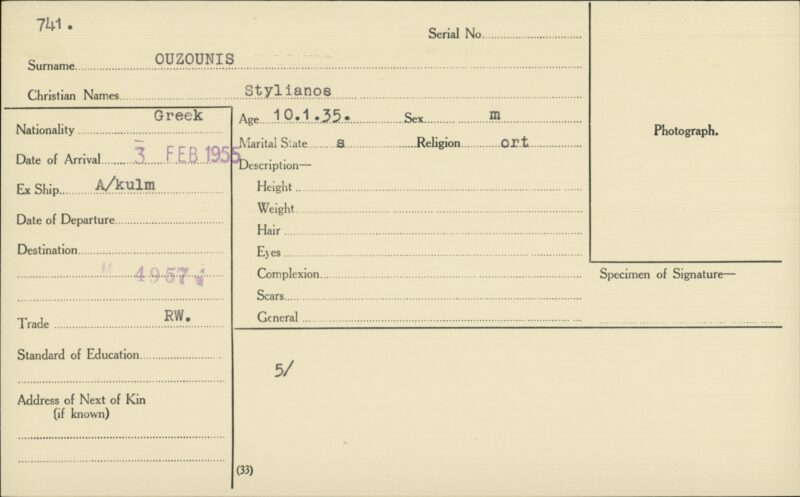 741.
Serial No.
Surname OUZOUNIS
Christian Names Stylianos
Nationality Greek
Date of Arrival 3 FEB 1955
Ex Ship A/kulm
Date of Departure
Destination
4957
Trade RW.
Standard of Education
Address of Next of Kin
(if known)
Age 10.1.35. Sex m
Marital State s Religion ort
Description—
Height
Weight
Hair
Eyes
Complexion
Scars
General
5/
(33)
Photograph.
Specimen of Signature—